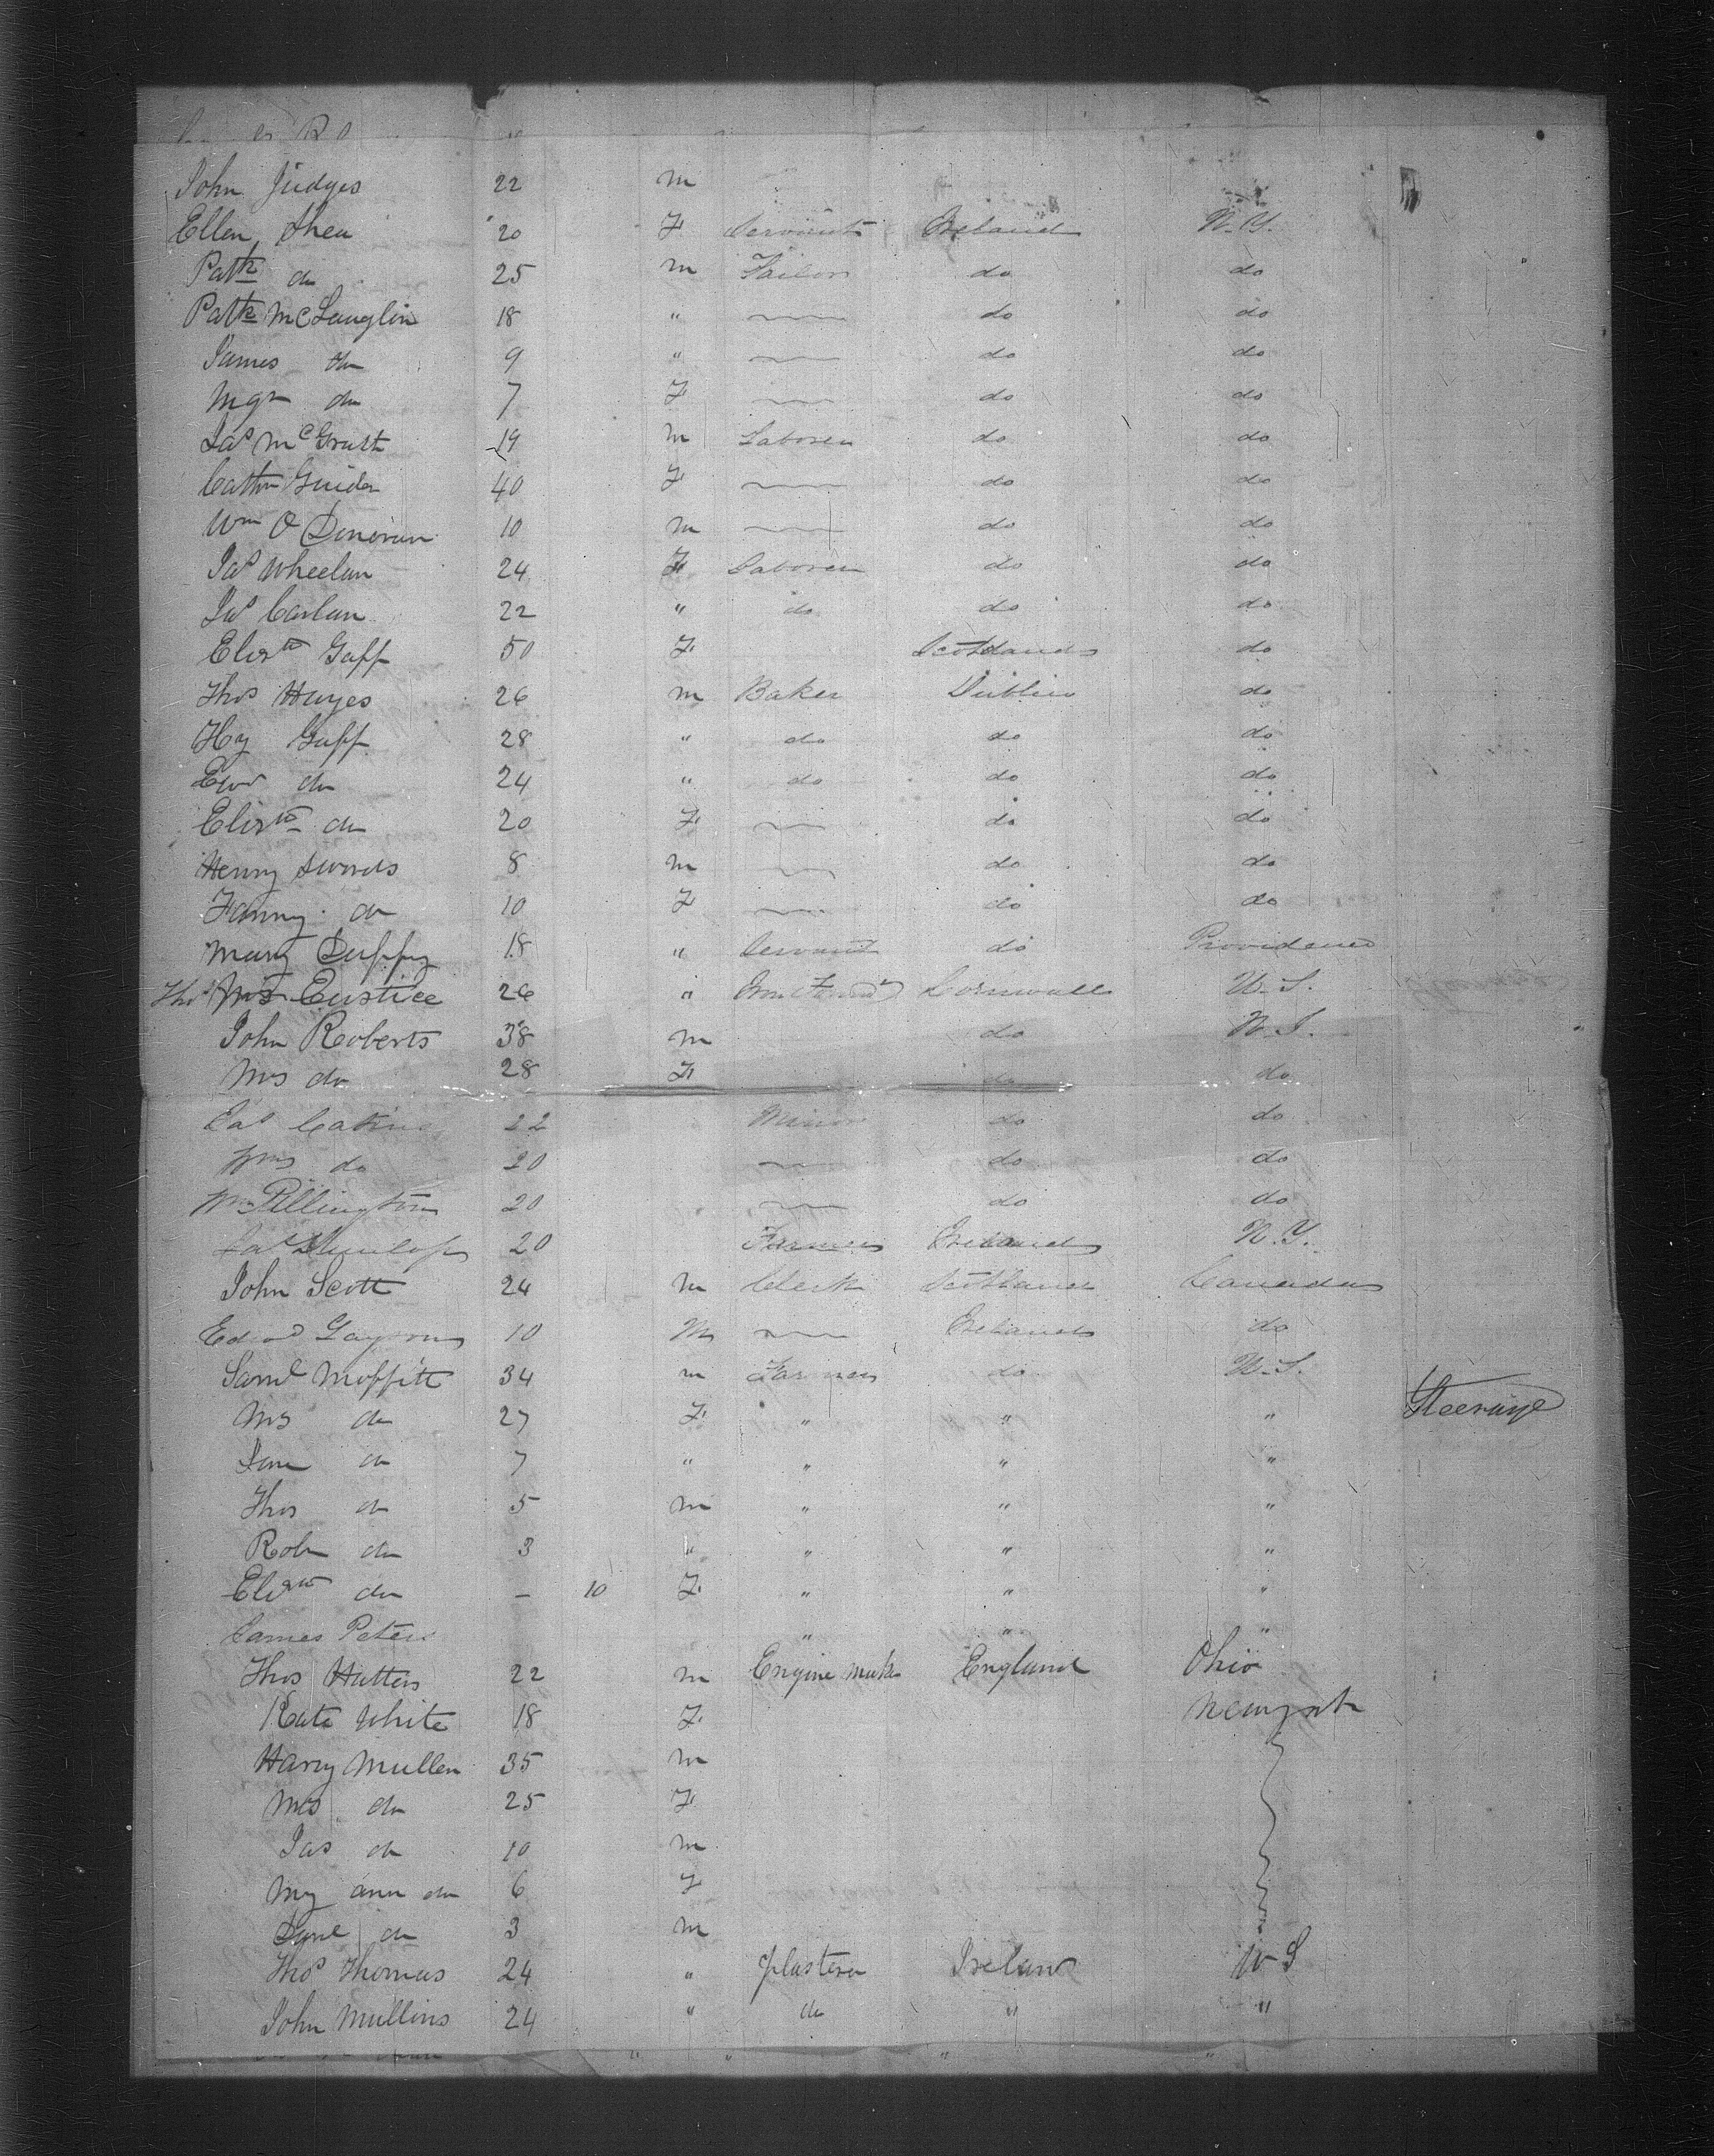 John Judges 22 m
Ellen Shea 20 F Servant Ireland N.Y.
Patk do 25 m Tailor do do
Patk McLauglin 18 " do do
James do 9 " do do
Mgt do 7 F do do
Jas McGrath 19 m Laborer do do
Cathn 40 F do do
Wm O Donovan 10 m do do
Jas Wheelan 24 F Laborer do do
Jas Carlan 22 " do do do
Elizth Gaff 50 F Scotland do
Thos Hayes 26 m Baker Dublin do
Hy Gaff 28 " do do do
Edwd do 24 " do do do
Elizth do 20 F do do
Henry Swords 8 m do do
Fanny do 10 F do do
Mary Duffy 18 " Servant do Providence
Thos Mrs Eustice 26 " Cornwall U.S.
John Roberts 38 m do U.S.
Mrs do 28 F do do
Jas 22 Miner do do
Mrs do 20 do do
Wm Pillington 20 do do
Jas Dunlop 20 Farmer Ireland N.Y.
John Scott 24 m Clerk Scotland Canada
Edwd 10 M Ireland do
Saml Moffitt 34 m Farmer do U.S.
Mrs do 27 F " " " Steerage
Jane do 7 " " " "
Thos do 5 m " " "
Robt do 3 " " " "
Elizth do – 10 F " " "
James Peters " " "
Thos Hutters 22 m Engine Mak England Ohio
Kate White 18 F Newyork
Harry Mullen 35 m
Mrs do 25 F
Jas do 10 m
My Ann do 6 F
Jane do 3 m
Thos Thomas 24 " plasterer Ireland U S
John Mullins 24 " do " "